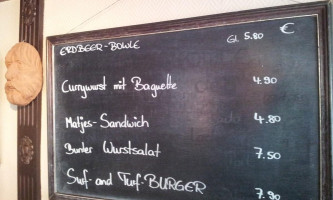 €
ERDBEER-BOWLE Gl. 5.80
Currywurst mit Baguette 4.90
Matjes-Sandwich 4.80
Bunter Wurstsalat 7.50
Surf-and Turf-BURGER 7.90